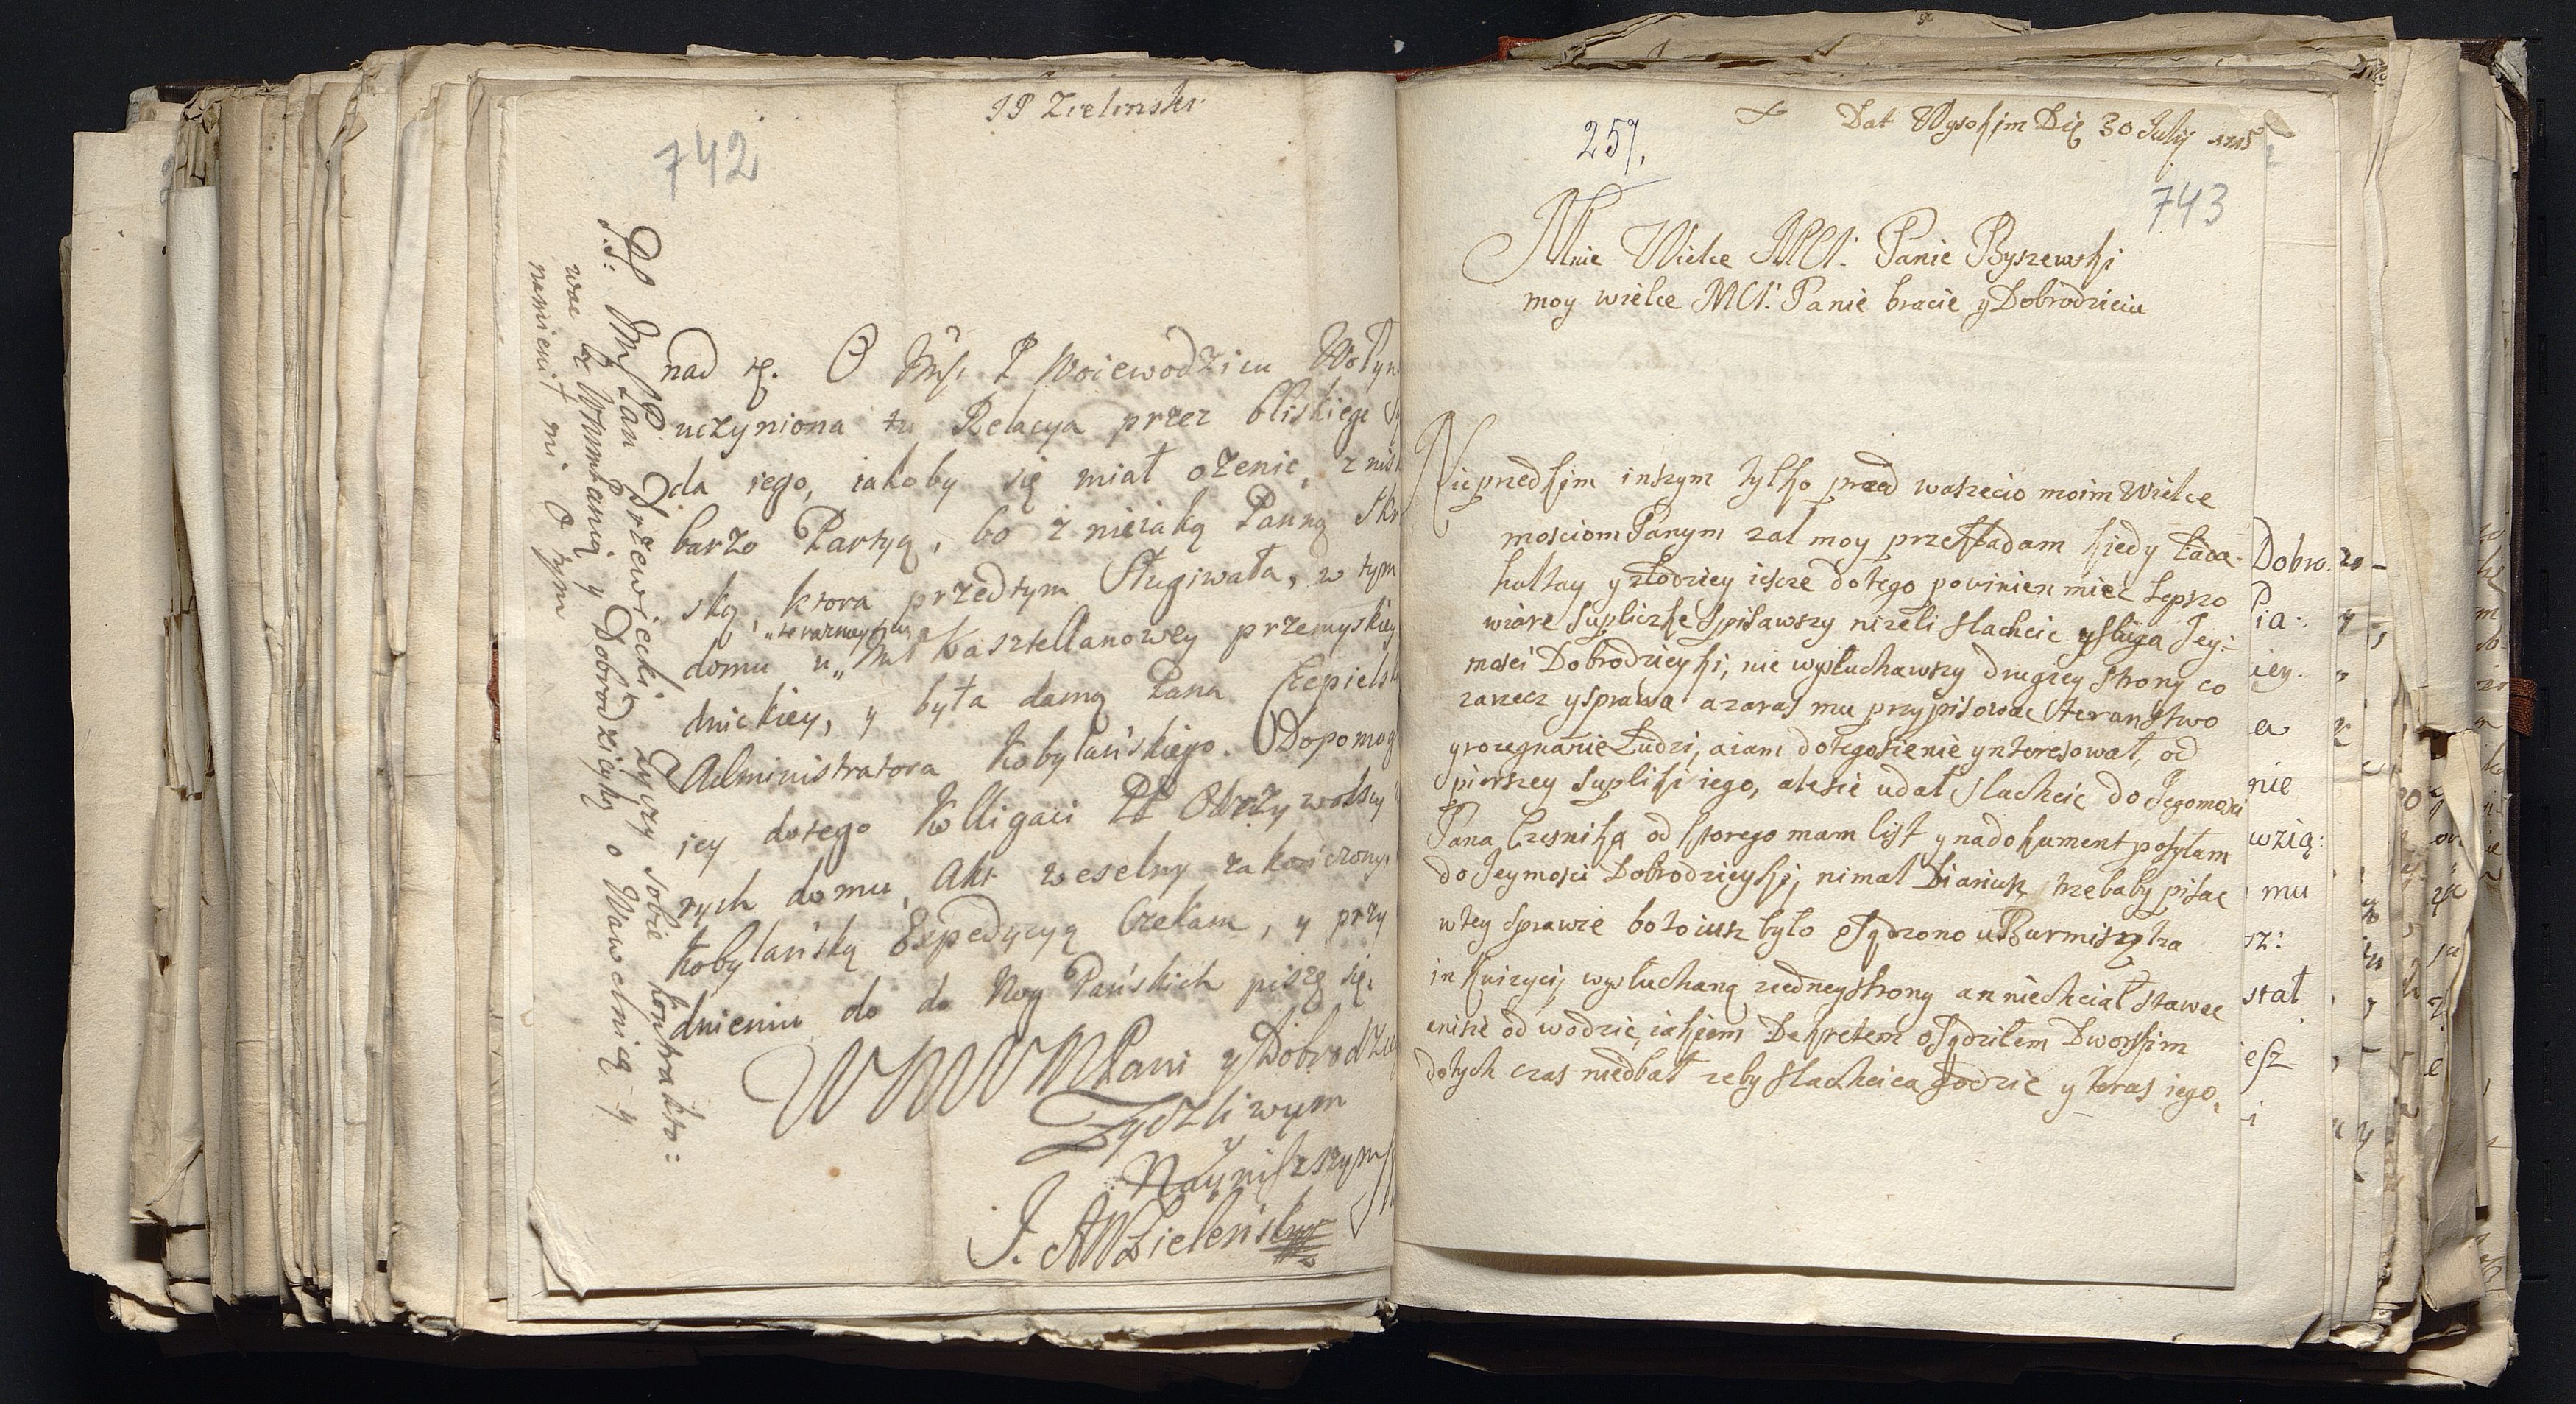 JP Zielinski
742
nad tę. O Jmści P Woiewodzicu Wołyn
uczyniona tu Relacya przez bliskiego
da iego, iakoby się miał ożenić, z nisk
barzo Partyą, bo z nieiaką Panną Skr
ską, ktora przedtym Sługiwała, w tym
domu u Kasztellanowey przemyskiey
dnickiey, y była damą Pana Czepiels
Administratora Kobylańskiego. Dopomog
iey do tego Kolligaci
rych domu, Akt weselny zakończony
Kobylańską Expedycyą Czekam, y przy
dnieniu do do Nog Pańskich piszę się
WMWMPani y Dobrodzie
Zyczliwym
y Nayniższym
J. AWZieleński
P.S: Jmść Pan Drzewiecki życzy sobie kontrakto:
wać z WMMPanią y Dobrodzieyką o Wawelnią y
namienił mi o tym
257.
Dat Wysokim Die 30 Julij 1715
743
Mnie Wielce MCi: Panie Byszewski
moy wielce MCi: Panie bracie y Dobrodzieiu
Nieprzedkim inszym tylko przed waszecio moim Wielce
mosciom Panym zal moy przekładam kiedy łada
hultay y złodziey ieszcze do tego powinien miec Lepszo
wiare supliczke spisawszy nizeli slachcic y sługa Jey:
mosci Dobrodzieyki, nie wysłuchawszy drugiey strony co
zarzecz y sprawa a zaras mu przypisowac teranstwo
y rozegnanie Ludzi, a iam do tego sie nie ynteresował, od
pierszey supliki iego, ale sie udał slachcic do Jegomosci
Pana Czesnika od ktorego mam list y na dokument posyłam
do Jeymosci Dobrodzieyki, nimal Diariusz trzebaby pisac
w tey sprawie bo to iusz było osądzono u Burmisztza
inkwizycij wysłuchaną z iedney strony an niechciał stawac
ani sie odwodzic, iakiem Dekretem osądziłem Dworskim
do tych czas niedbał zeby slachcica godzic y teras iego
Dobro.
Pia:
iey.
a
nie
wzią:
mu
sz:
stał
esz
i